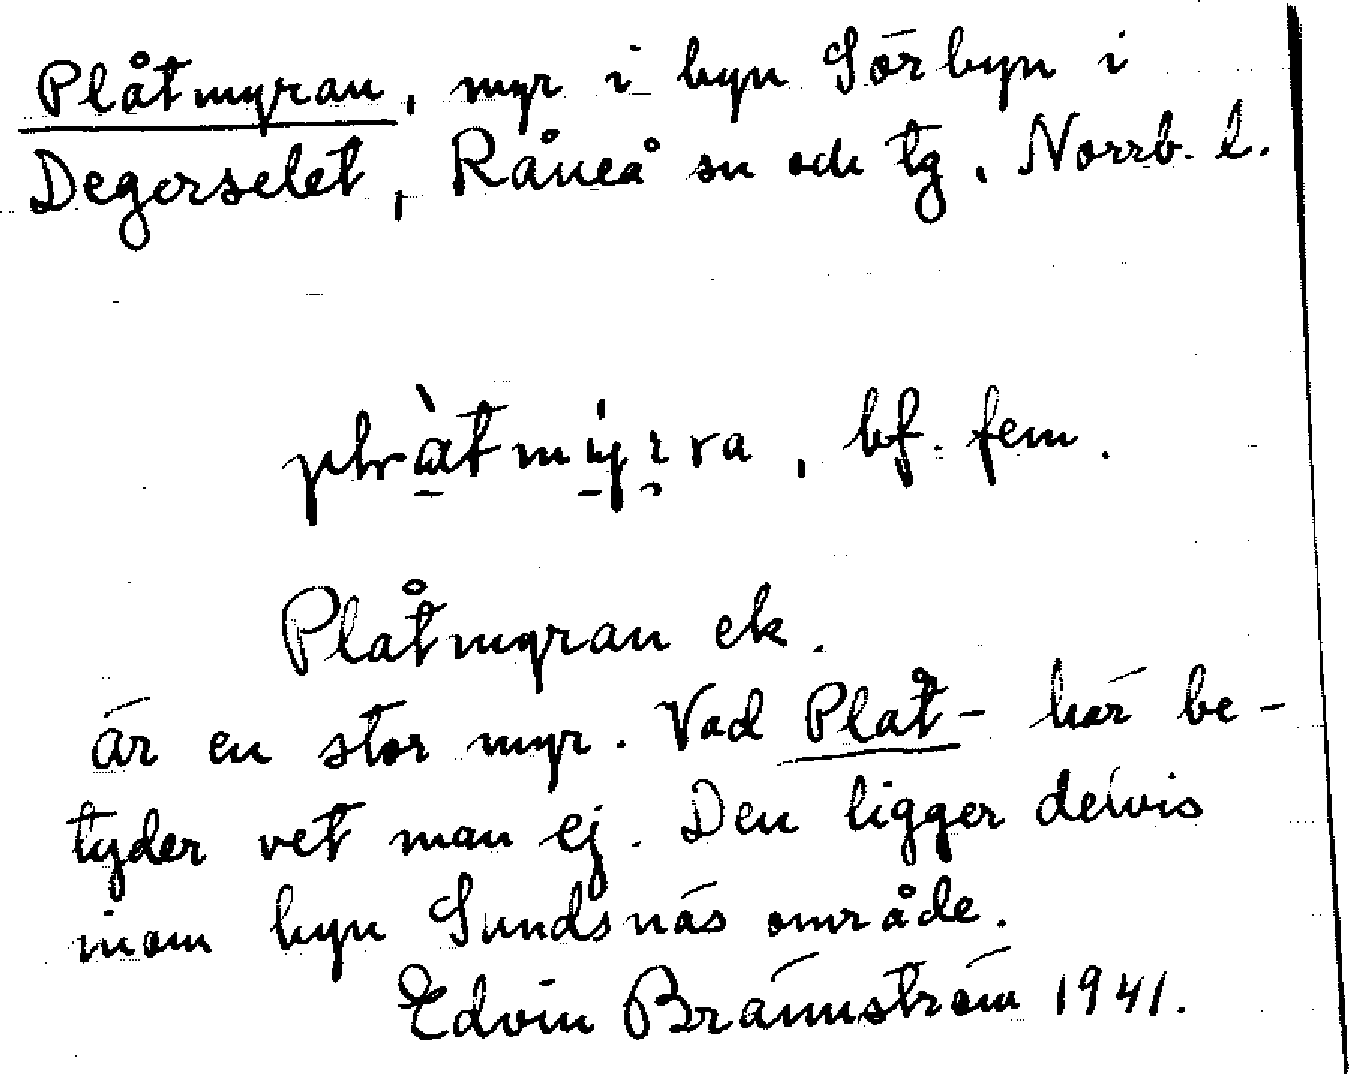 Plåtmyran, myr i byn Sörbyn i
Degerselet, Råneå sn och tg, Norrb. l.
bf. fem.
Plåtmyran ek.
är en stor myr. Vad Plåt- här be-
tyder vet man ej. Den ligger delvis
inom byn Sundsnäs område.
Edvin Brännström 1941.